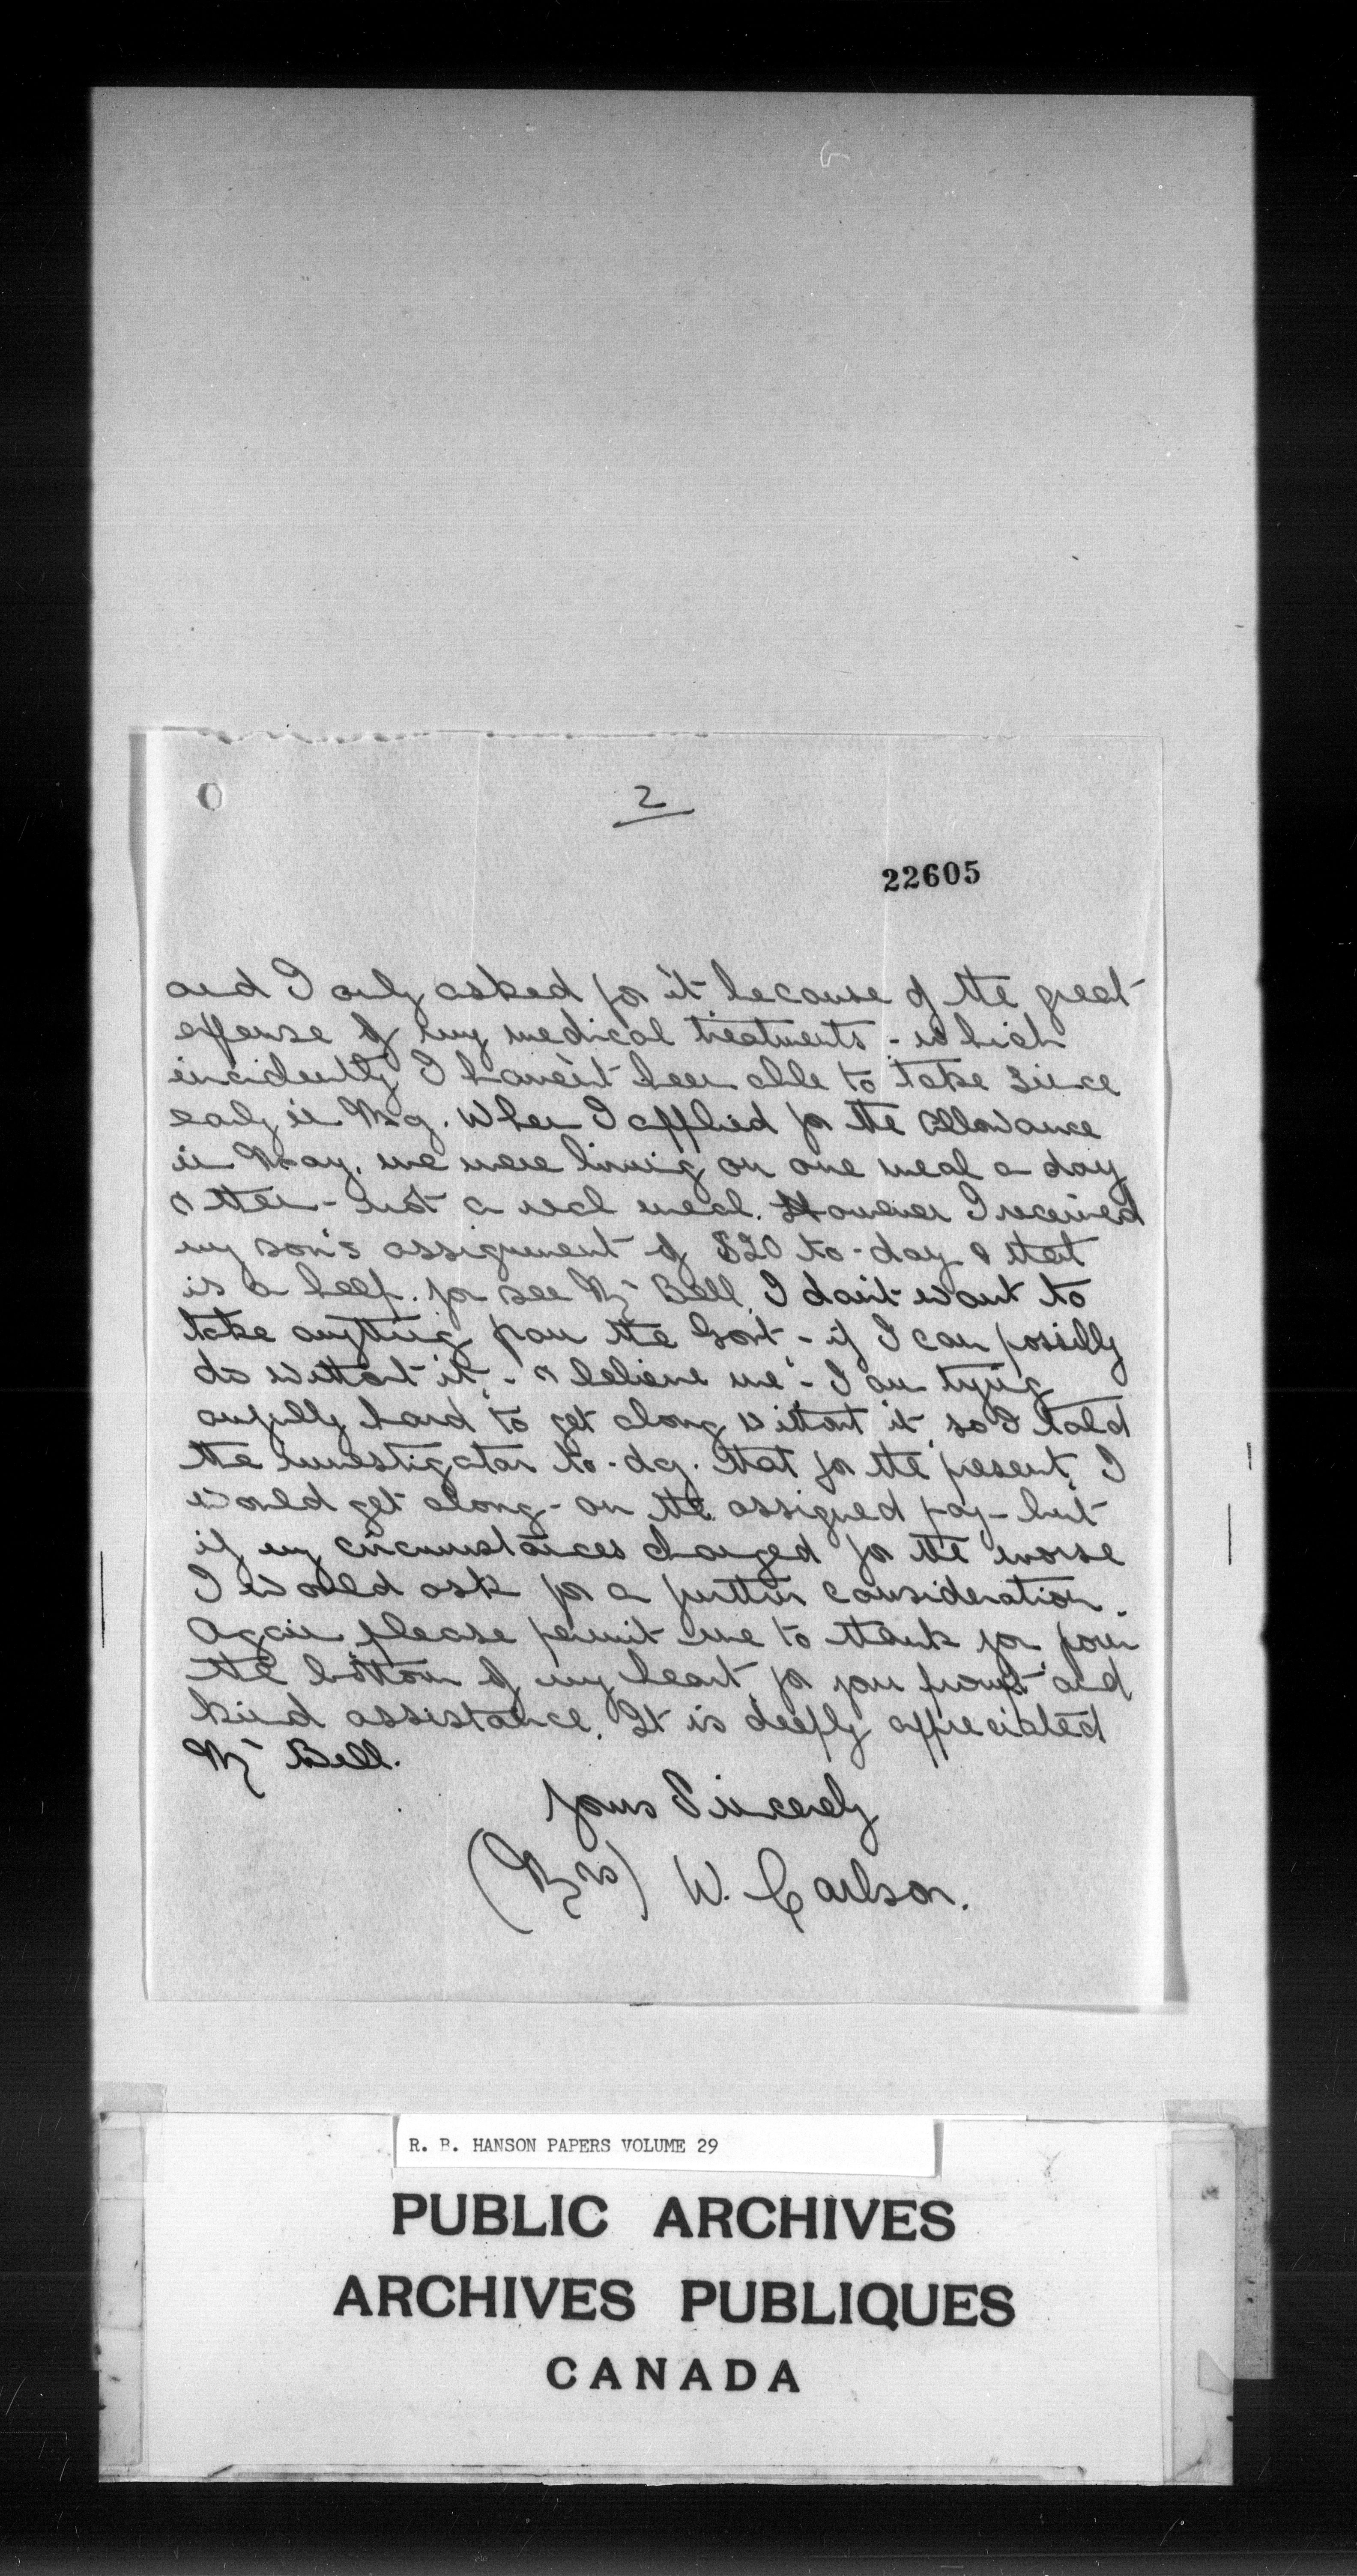 2
22605
and I only asked for it because of the great
expense of my medical treatments - which
incidently I haven't been able to take since
early in May. When I applied for the Allowance
in May, we were living on one meal a day
& then - not a real meal. However I received
my son's assignment of $20 to-day & that
is a help. You see Mr Bell, I don't want to
take anything from the Govt - if I can possibly
do without it, - & believe me - I am trying
awfully hard to get along without it, so I told
the investigator to-day. that for the present, I
would get along - on the assigned pay - but
if my circumstances changed for the worse
I would ask for a further consideration.
Again please permit me to thank you, from
the bottom of my heart, for your prompt and
kind assistance. It is deeply appreciated
Mr Bell.
Yours Sincerely
(Mrs) W. Carlson.
R. B. HANSON PAPERS VOLUME 29
PUBLIC ARCHIVES
ARCHIVES PUBLIQUES
CANADA